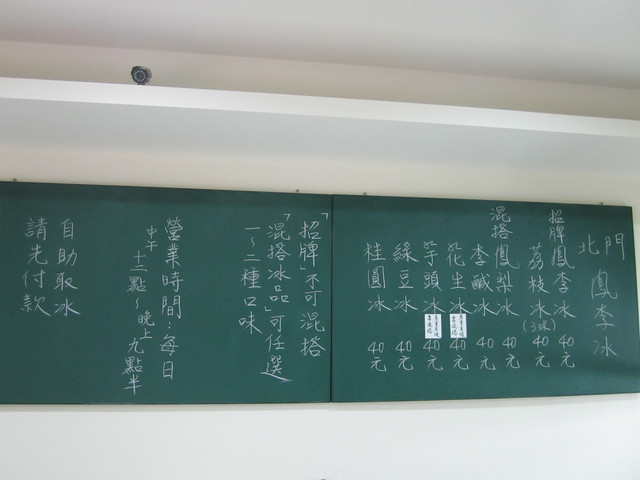 北門鳳李冰
招牌
鳳李冰 40元
荔枝冰(3球) 40元
混搭
鳳梨冰 40元
李鹹冰 40元
花生冰 40元
芋頭冰 40元
綠豆冰 40元
桂圓冰 40元
「招牌」不可混搭
「混搭冰品」可任選
一~二種口味
營業時間：每日
中午十二點~晚上九點半
自助取冰
請先付款